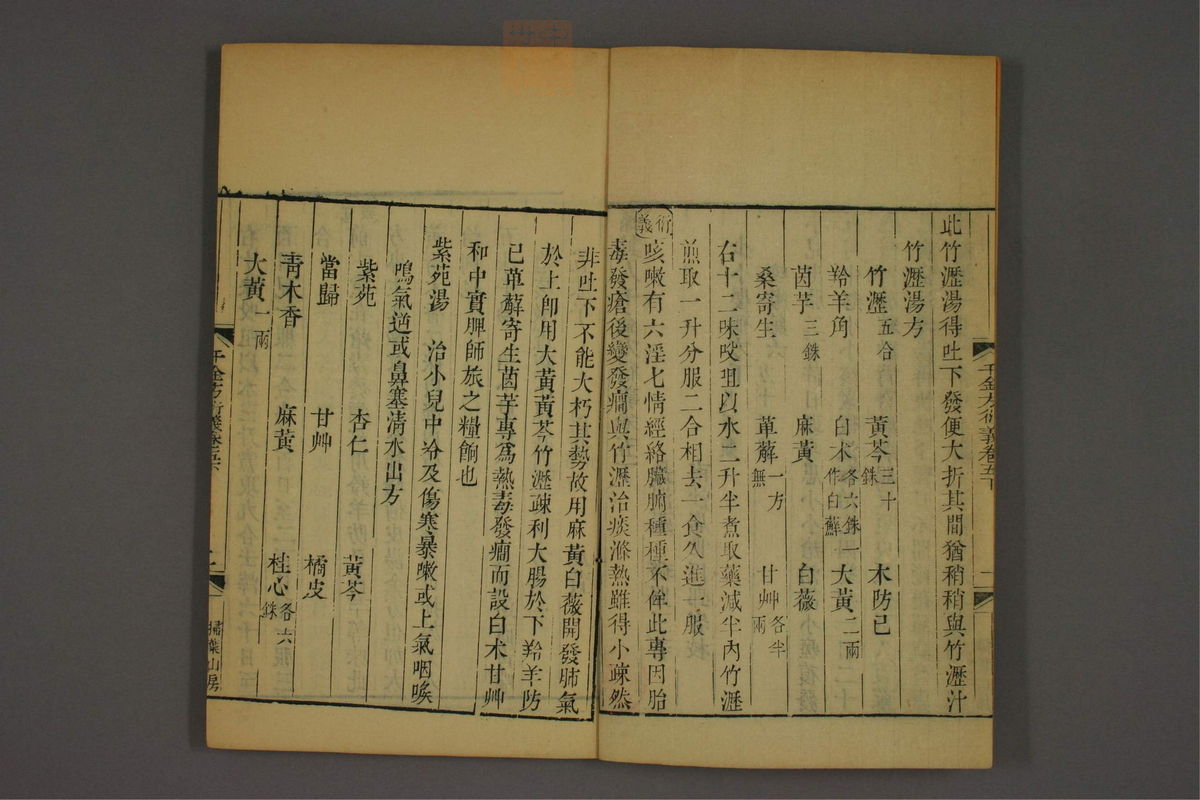 千金方衍義卷五下
此竹瀝湯得吐下發便大折其間猶稍稍與竹瀝汁
竹瀝湯方
竹瀝五合 黃芩三十銖 木防己
羚羊角 白朮各六銖一作白蘚 大黃二兩
茵芋三銖 麻黃 白薇
桑寄生 萆薢一方無 甘艸各半兩
右十二味㕮咀以水二升半煮取藥減半內竹瀝
煎取一升分服二合相去一食久進一服
衍義
咳嗽有六淫七情經絡臟腑種種不侔此專因胎
毒發瘡後變發癎與竹瀝治痰滌熱雖得小疎然
非吐下不能大朽其勢故用麻黃白薇開發肺氣
於上卽用大黃黃芩竹瀝疎利大腸於下羚羊防
已萆薢寄生茵芋專爲熱毒發癎而設白朮甘艸
和中實脾師旅之糧餉也
紫苑湯 治小兒中冷及傷寒暴嗽或上氣咽喉
鳴氣逆或鼻塞清水出方
紫苑 杏仁 黃芩
當歸 甘艸 橘皮
靑木香 麻黃 桂心各六銖
大黃一兩
千金方衍義卷五下
掃葉山房